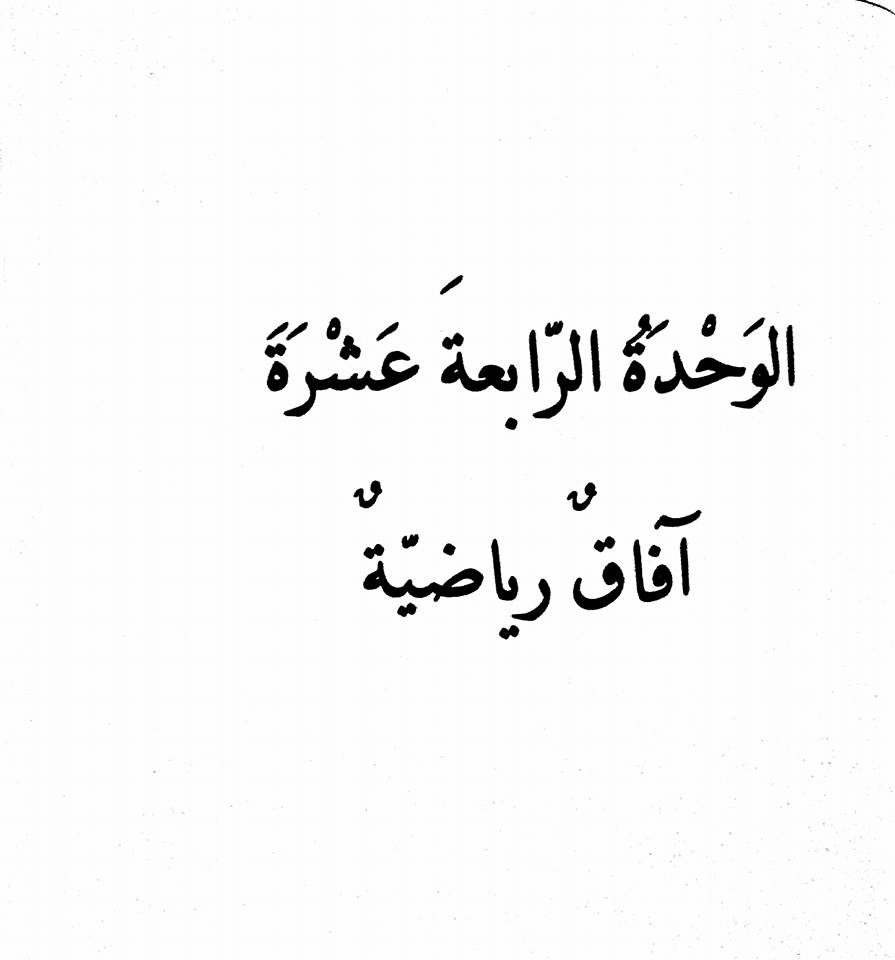 الوَحْدَةُ الرّابعةَ عَشْرَةَ
آفاقٌ رياضيّةٌ